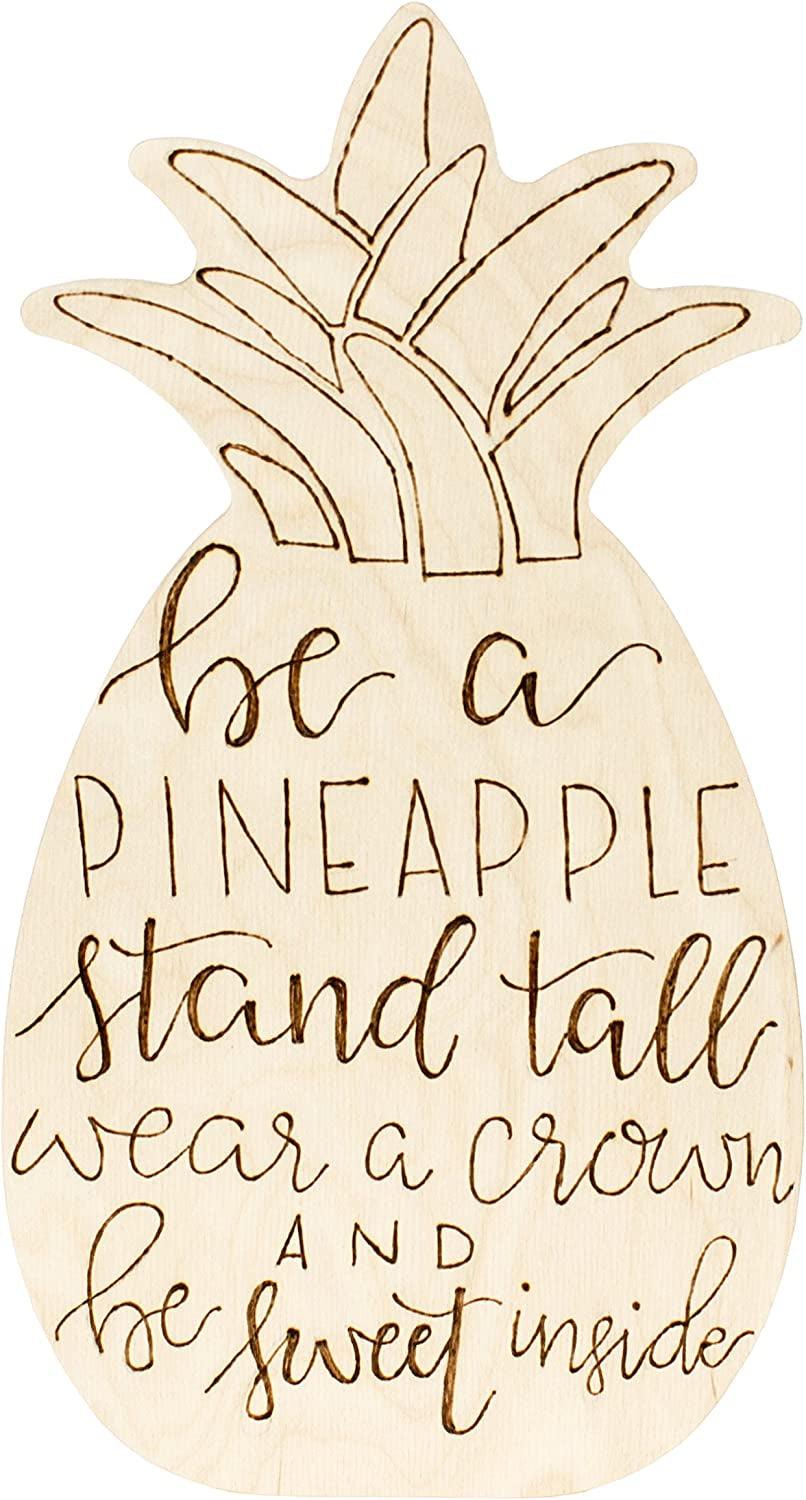 be a
PINEAPPLE
stand tall
wear a crown
AND
be sweet inside